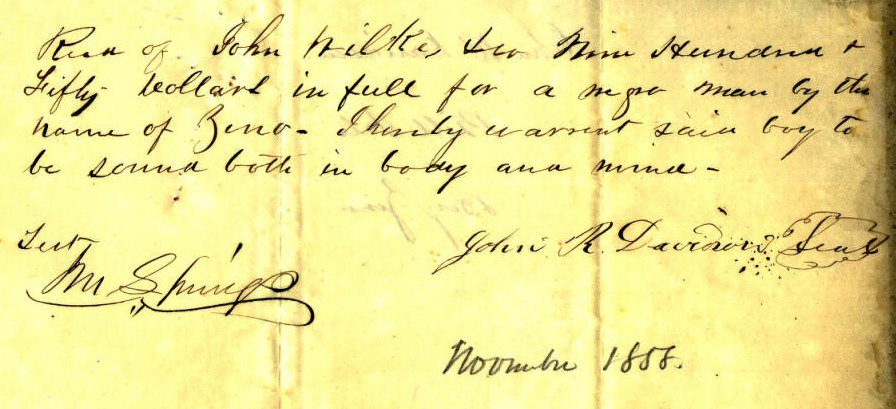 Recd of John Wilkes Nine Hundred &
Fifty Dollars in full for a negro man by the
name of Zeno - I hereby warrent said boy to
be sound both in body and mind -
Test
John R. Davidson Seal
Wm Springs
November 1858.